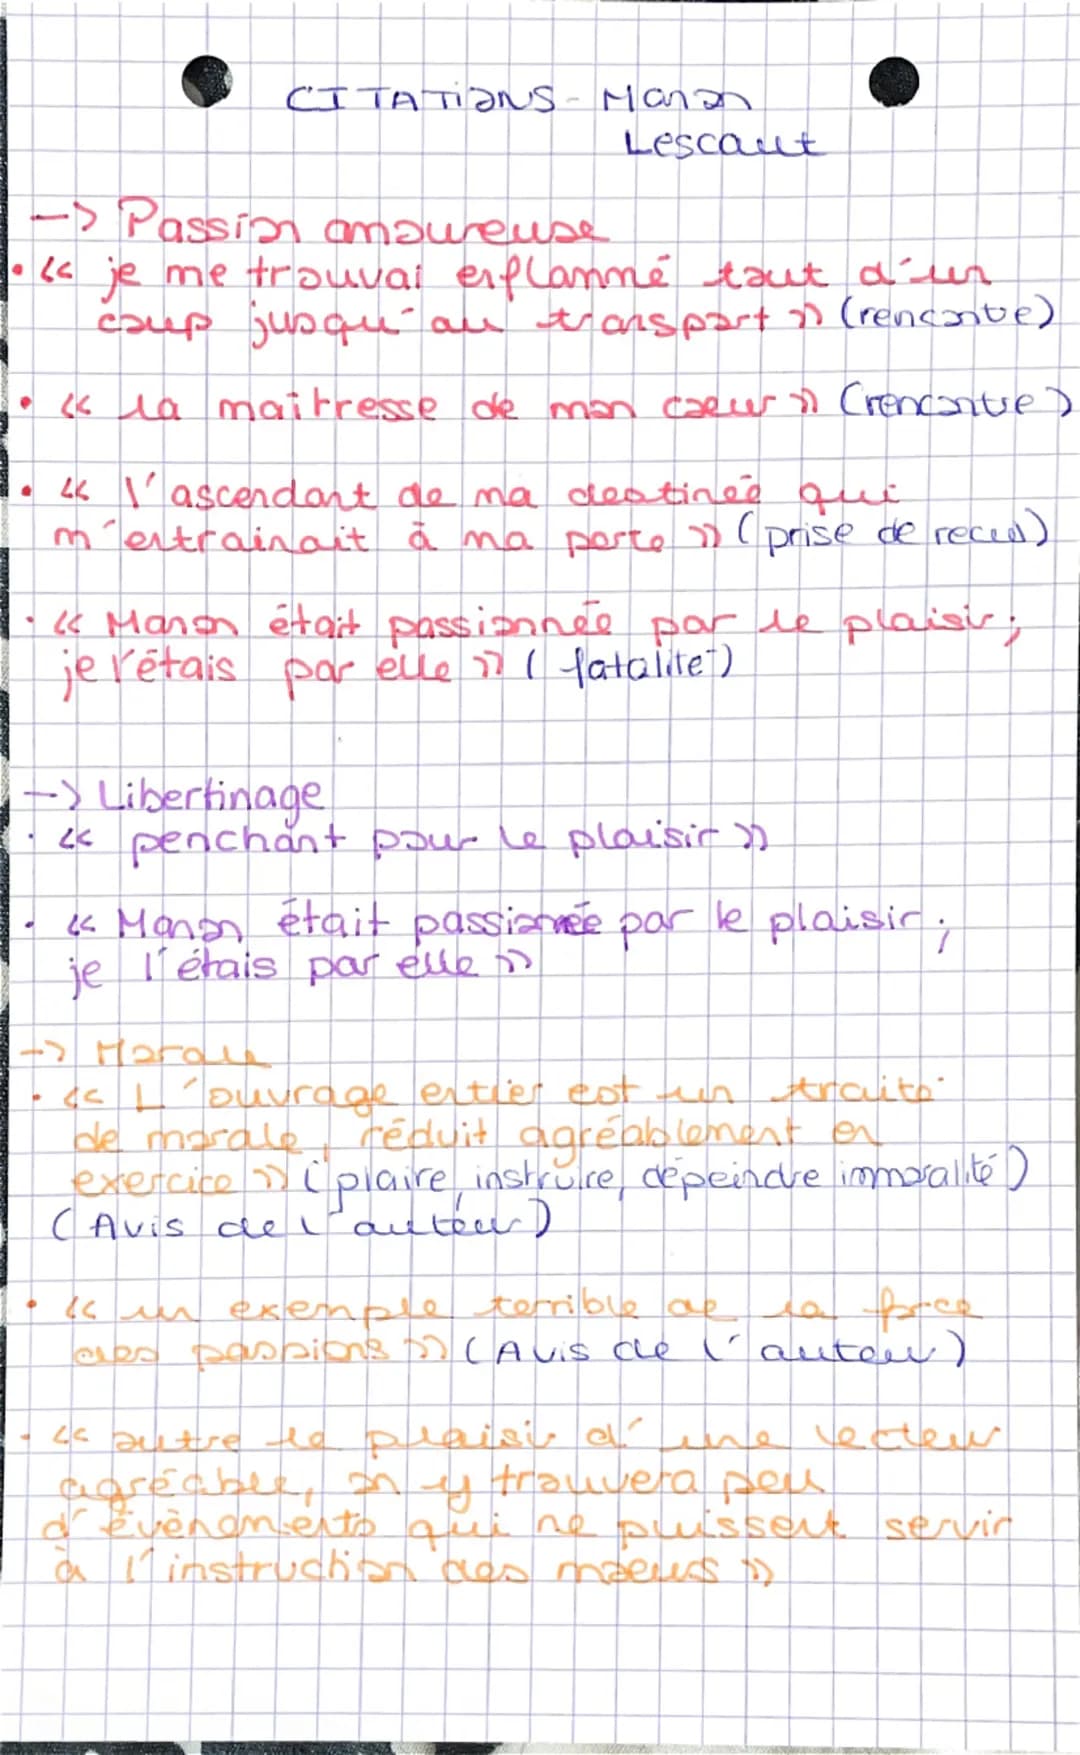 CITATIONS - Manon
Lescaut
-> Passion amoureuse
• « je me trouvai enflammé tout d'un
coup jusqu'au transport » (rencontre)
• « la maîtresse de mon cœur » (rencontre)
• « l'ascendant de ma destinée qui
m'entrainait à ma perte » (prise de recul)
• « Manon était passionnée par le plaisir ;
je l'étais par elle » ( fatalité )
-> Libertinage
• « penchant pour le plaisir »
• « Manon était passionnée par le plaisir ;
je l'étais par elle »
-> Morale
• « L'ouvrage entier est un traité
de morale, réduit agréablement en
exercice » (plaire, instruire, dépeindre immoralité)
(Avis de l'auteur)
• « un exemple terrible de la force
des passions » (Avis de l'auteur)
• « outre le plaisir d'une lecteur
agréable, on y trouvera peu
d'évènements qui ne puissent servir
à l'instruction des mœurs »